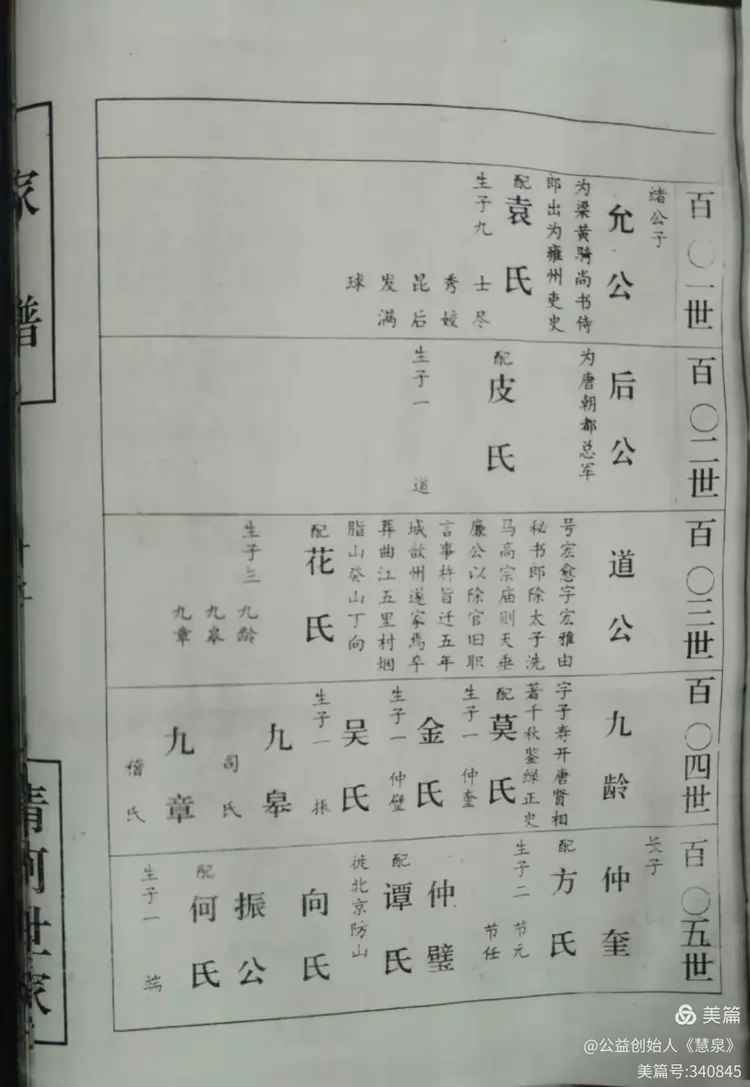 百〇一世
绪公子
允公
为梁黄骑尚书侍
郎出为雍州吏史
配
袁氏
生子九
士尽
秀姣
昆后
发满
球
百〇二世
后公
为唐朝都总军
配
皮氏
生子一 道
百〇三世
道公
号宏愈字宏雅由
秘书郎除太子洗
马高宗庙则天垂
廉公以除官旧职
言事杵旨迁五年
域歙州遂家焉卒
葬曲江五里村烟
脂山癸山丁向
配
花氏
生子三 九龄
九皋
九章
百〇四世
九龄
字子寿开唐贤相
著千秋鉴绿正史
配
莫氏
生子一 仲奎
金氏
生子一 仲璧
吴氏
生子一 振
九皋
司氏
九章
偕氏
百〇五世
长子
仲奎
配
方氏
生子二 节元
节任
仲璧
配
谭氏
徙北京防山
向氏
振公
配
何氏
生子一 端
家谱
清河世家
美篇
@公益创始人《慧泉》
美篇号:340845